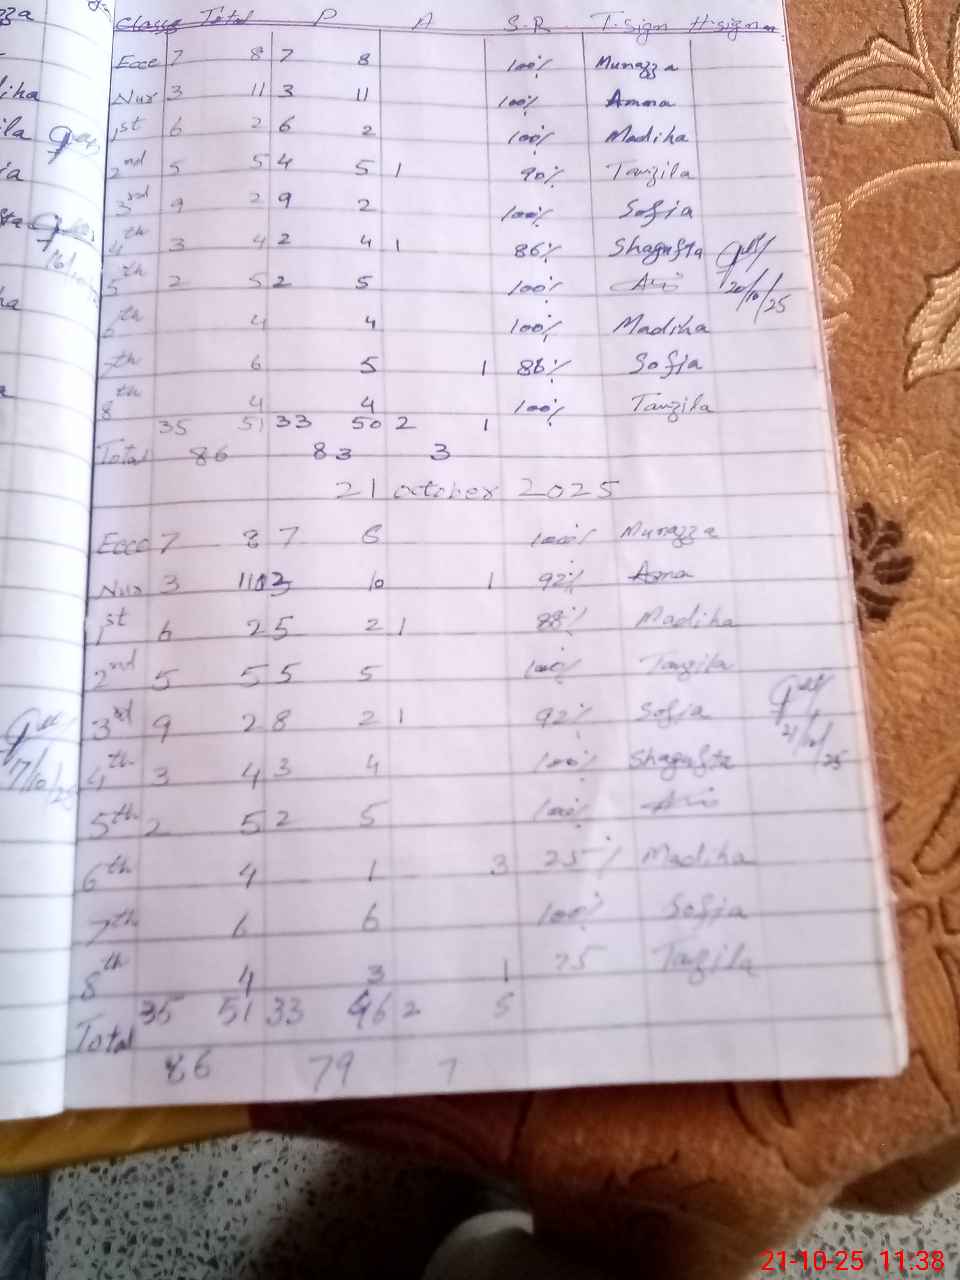 Classes Total P A S.R T-sign H-sign
Ecce 7 8 7 8 100% Munazza
Nur 3 11 3 11 100% Amna
1st 6 2 6 2 100% Madiha
2nd 5 5 4 5 1 90% Tanzila
3rd 9 2 9 2 100% Sofia
4th 3 4 2 4 1 86% Shagufta
5th 2 5 2 5 100%
20/10/25
6th 4 4 100% Madiha
7th 6 5 1 86% Sofia
8th 4 4 100% Tanzila
35 51 33 50 2 1
Total 86 83 3
21 october 2025
Ecce 7 8 7 8 100% Munazza
Nur 3 11 3 10 1 92% Amna
1st 6 2 5 2 1 88% Madiha
2nd 5 5 5 5 100% Tanzila
3rd 9 2 8 2 1 92% Sofia
21/10/25
4th 3 4 3 4 100% Shagufta
17/10/25
5th 2 5 2 5 100%
6th 4 1 3 25% Madiha
7th 6 6 100% Sofia
8th 4 3 1 75 Tazila
35 51 33 46 2 5
Total
86 79 7
21-10-25 11:38